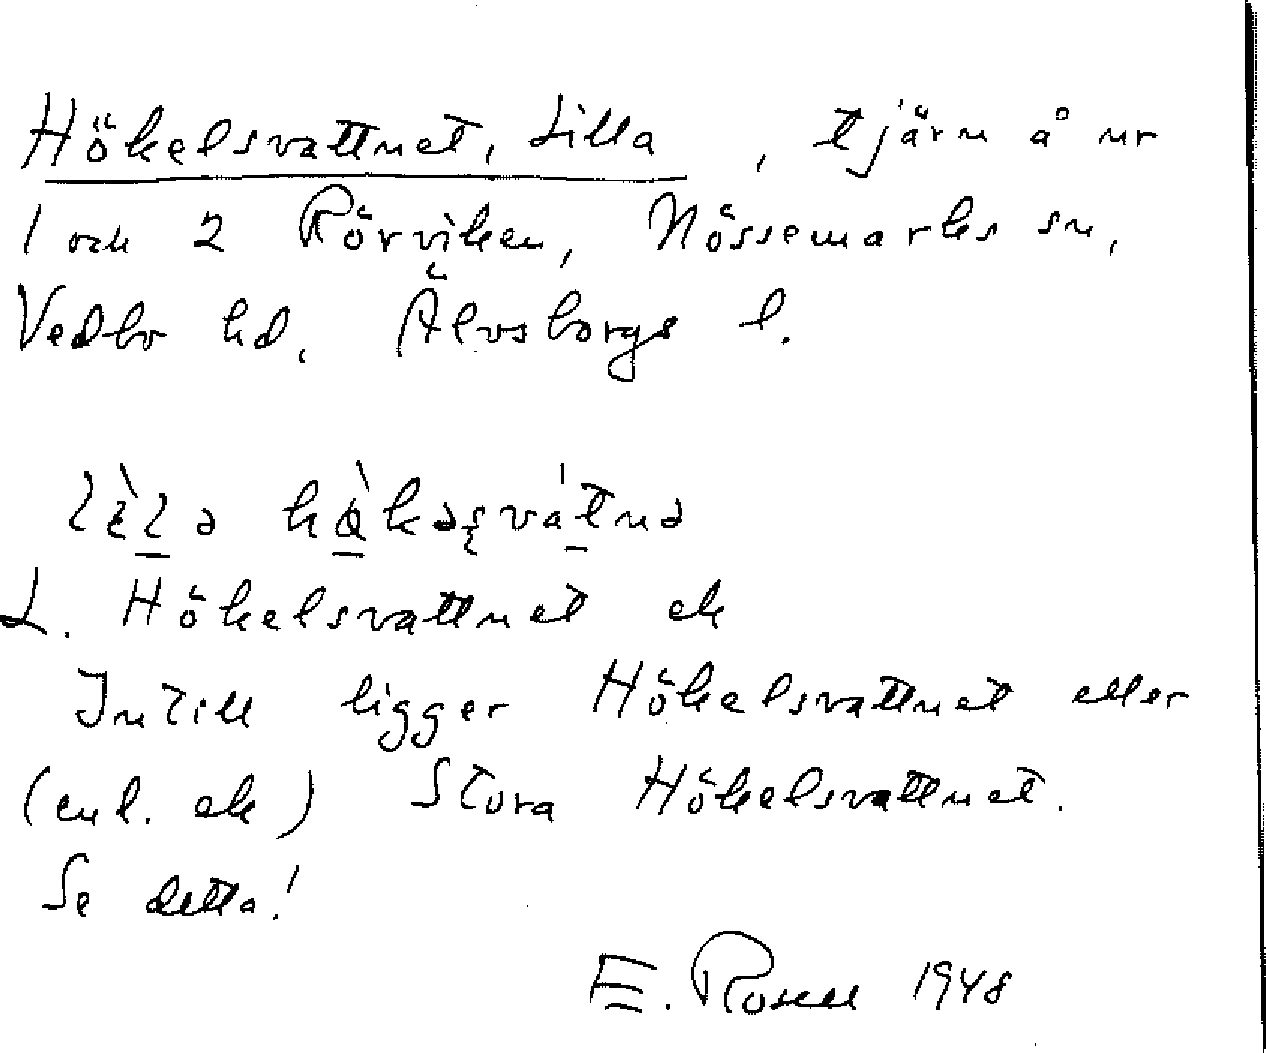 Hökelsvattnet, Lilla, tjärn å nr
1 och 2 Rörviken, Nössemarks sn,
Vedbo hd, Älvsborgs l.
L. Hökelsvattnet ek
Intill ligger Hökelsvattnet eller
(enl. ek) Stora Hökelsvattnet.
Se detta!
E. Rosell 1948